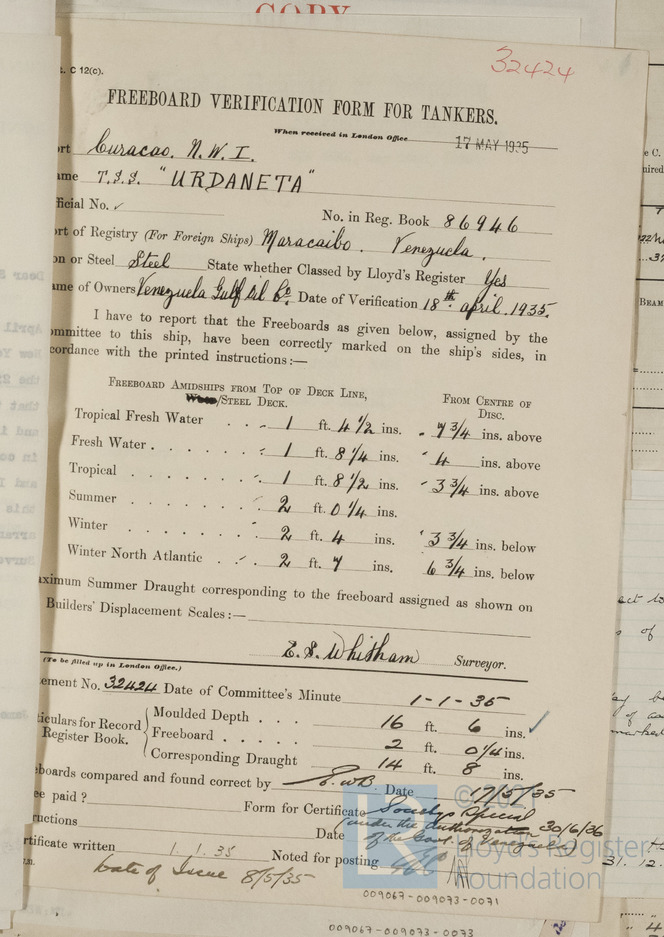 COPY
32424
C 12(c).
FREEBOARD VERIFICATION FORM FOR TANKERS.
When received in London Office 17 MAY 1935
ort Curacao. N.W.I.
ame T.S.S. "URDANETA"
ficial No. ✓ No. in Reg. Book 86946
ort of Registry (For Foreign Ships) Maracaibo. Venezuela.
on or Steel Steel State whether Classed by Lloyd's Register Yes
ame of Owners Venezuela Gulf Oil Co. Date of Verification 18th. april. 1935.
I have to report that the Freeboards as given below, assigned by the
ommittee to this ship, have been correctly marked on the ship's sides, in
cordance with the printed instructions:—
Freeboard Amidships from Top of Deck Line, From Centre of
/Steel Deck. Disc.
Tropical Fresh Water 1 ft. 4 1/2 ins. 7 3/4 ins. above
Fresh Water 1 ft. 8 1/4 ins. 4 ins. above
Tropical 1 ft. 8 1/2 ins. 3 3/4 ins. above
Summer 2 ft. 0 1/4 ins.
Winter 2 ft. 4 ins. 3 3/4 ins. below
Winter North Atlantic 2 ft. 7 ins. 6 3/4 ins. below
aximum Summer Draught corresponding to the freeboard assigned as shown on
Builders' Displacement Scales:—
E.S. Whitham Surveyor.
(To be filled up in London Office.)
ement No. 32424 Date of Committee's Minute 1-1-35
ticulars for Record Moulded Depth 16 ft. 6 ins. ✓
Register Book. Freeboard 2 ft. 0 1/4 ins.
Corresponding Draught 14 ft. 8 ins.
eboards compared and found correct by Date 17/5/35
ee paid? Form for Certificate Society's Special
(under the Authorization 30/6/36
ructions Date of the Govt. of Venezuela)
rtificate written 1.1.35 Noted for posting
Date of Issue 8/5/35
© 2021
Lloyd's Register
Foundation
009067-009073-0071
009067-009073-0073